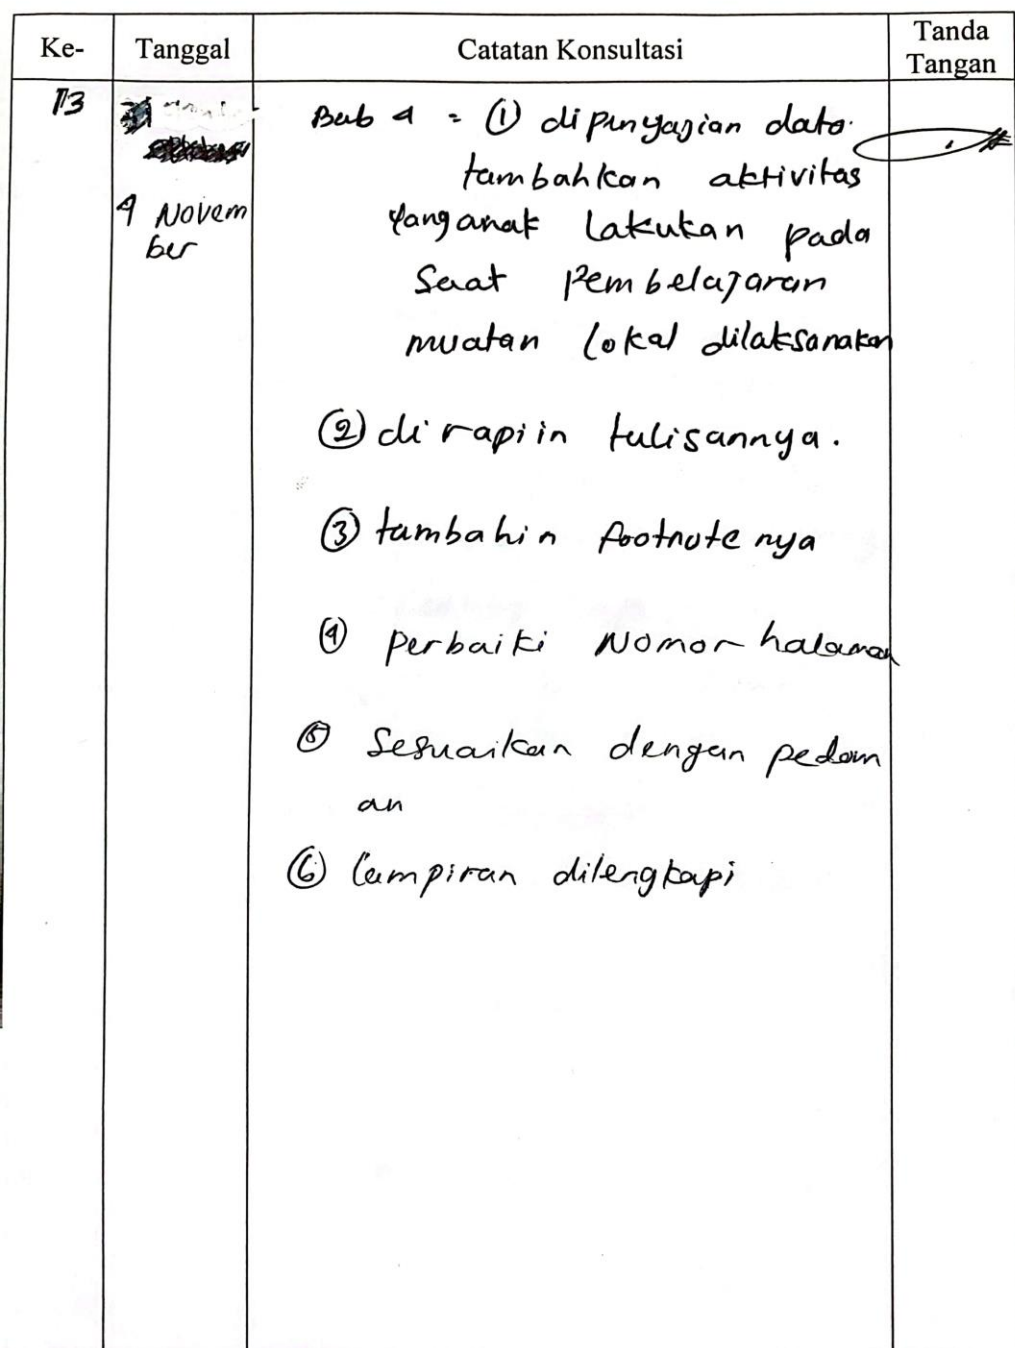 Ke- Tanggal Catatan Konsultasi Tanda Tangan
13
4 Novem
ber
Bab 4 = ① dipenyajian data.
tambahkan aktivitas
yang anak lakukan pada
Saat Pembelajaran
muatan lokal dilaksanakan
② di rapiin tulisannya.
③ tambahin footnote nya
④ perbaiki Nomor halaman
⑤ Sesuaikan dengan pedom
an
⑥ lampiran dilengkapi